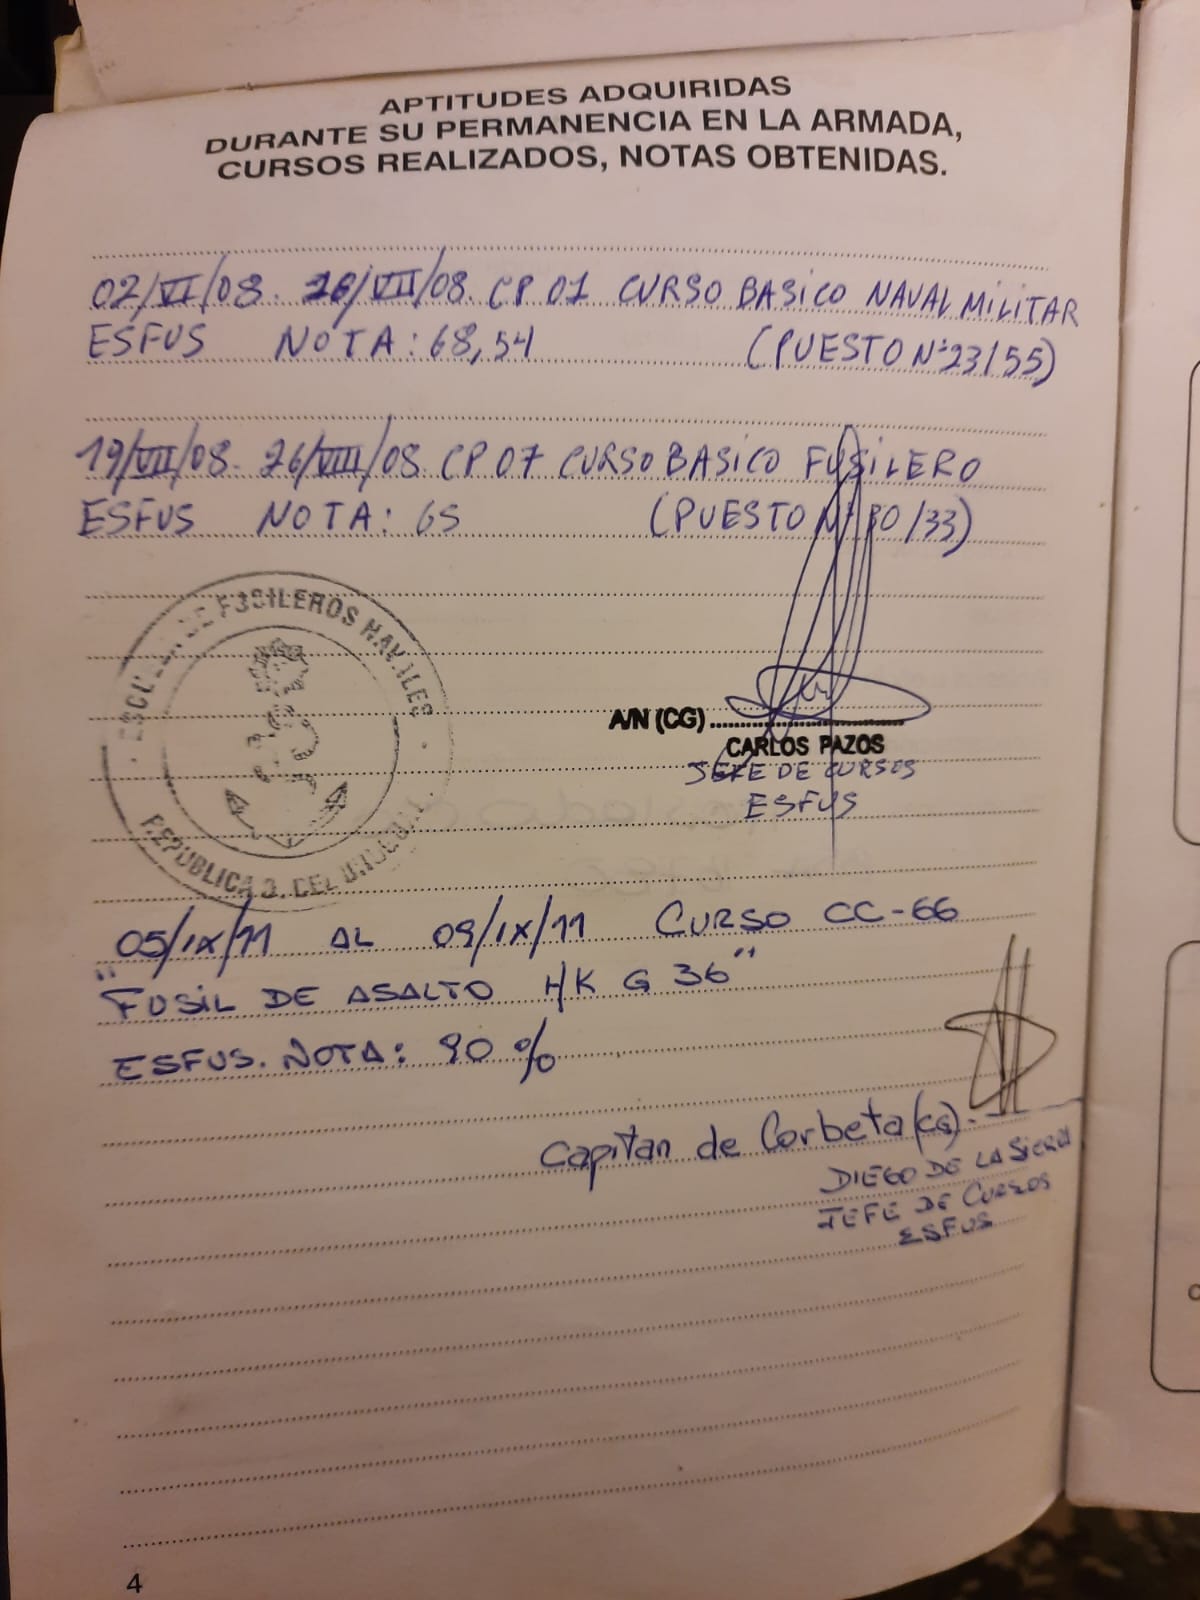 APTITUDES ADQUIRIDAS
DURANTE SU PERMANENCIA EN LA ARMADA,
CURSOS REALIZADOS, NOTAS OBTENIDAS.
02/VI/08. /VII/08. CP 01 CURSO BASICO NAVAL MILITAR
ESFUS NOTA: 68,54 (PUESTO N° 23/55)
19/VII/08. 26/VIII/08. CP 07 CURSO BASICO FUSILERO
ESFUS NOTA: 65 (PUESTO N° /33)
ESCUELA DE FUSILEROS NAVALES
REPUBLICA O. DEL URUGUAY
A/N (CG)
CARLOS PAZOS
JEFE DE CURSOS
ESFUS
05/IX/11 AL 09/IX/11 CURSO CC-66
"FUSIL DE ASALTO H/K G 36"
ESFUS. NOTA: 90 %
Capitan de Corbeta (CG).
DIEGO DE LA SIERRA
JEFE DE CURSOS
ESFUS
4